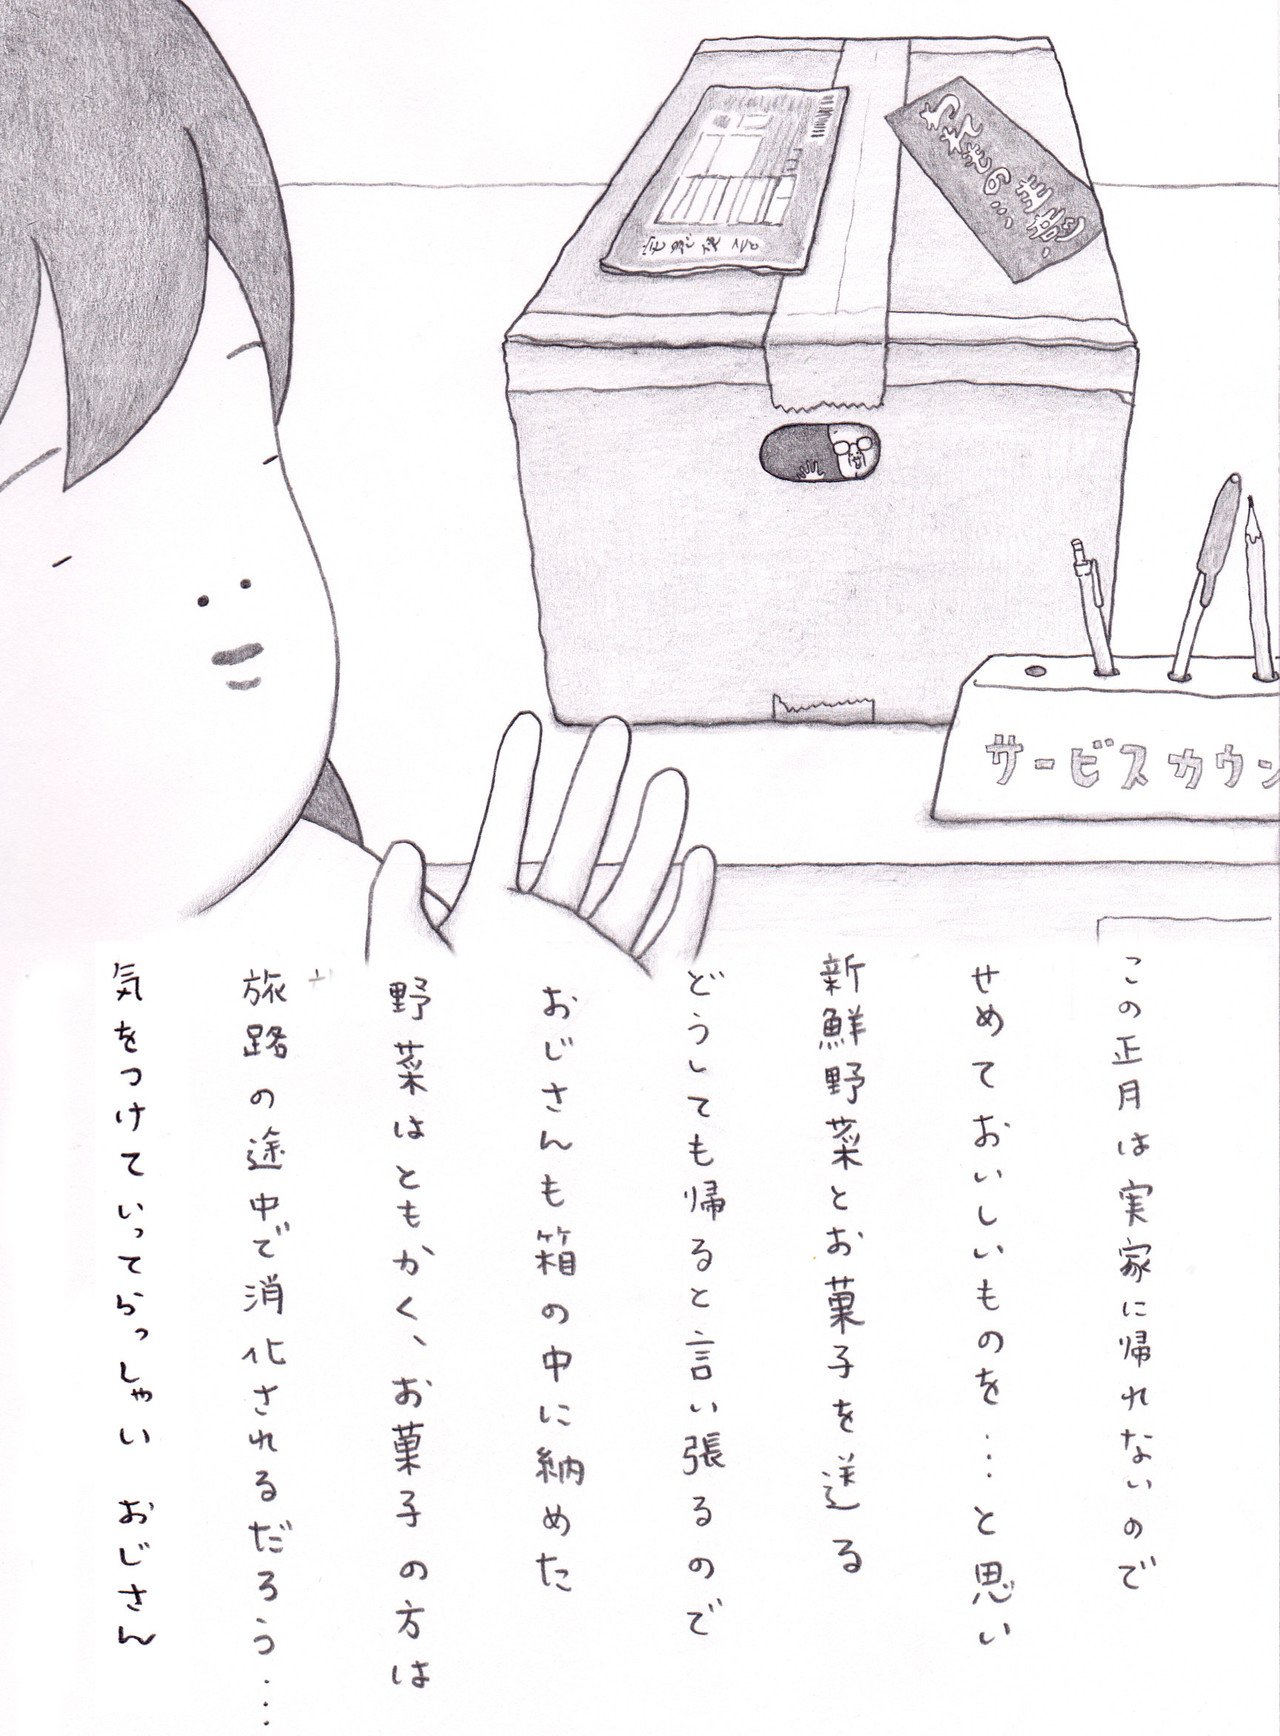 われもの…注意
サービスカウン
この正月は実家に帰れないので
せめておいしいものを…と思い
新鮮野菜とお菓子を送る
どうしても帰ると言い張るので
おじさんも箱の中に納めた
野菜はともかく、お菓子の方は
旅路の途中で消化されるだろう…
気をつけていってらっしゃい おじさん